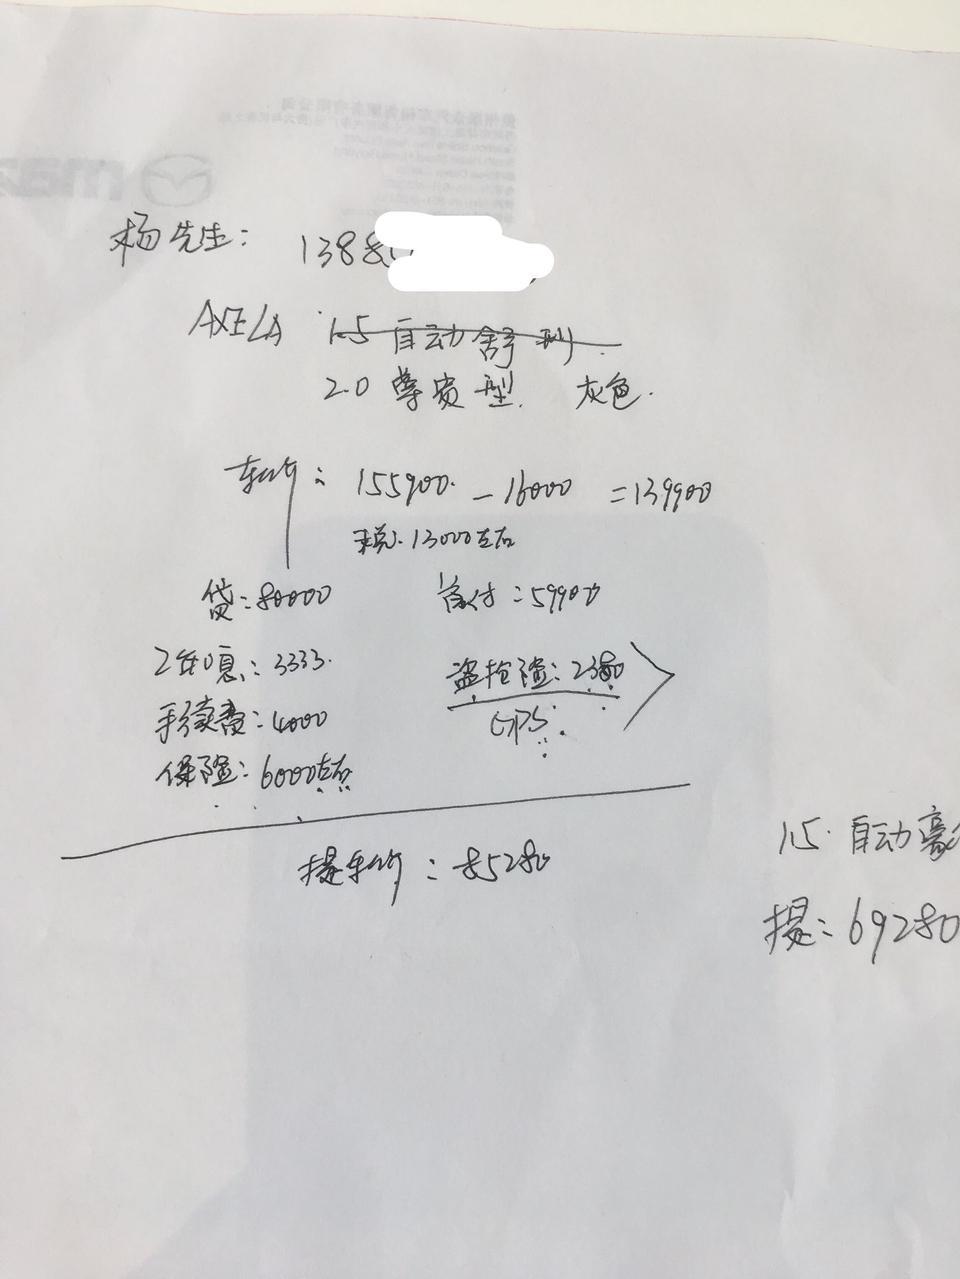 杨先生: 1388
AXELA 1.5自动舒
2.0 尊贵型. 灰色.
车价: 155900. - 16000 = 139900
税: 13000左右
贷: 80000 首付: 59900
2年息: 3333. 盗抢险: 2380
手续费: 4000 GPS
保险: 6000左右
提车价: 85280
1.5. 自动豪
提: 69280